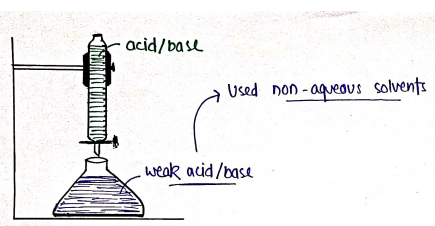 acid/base
Used non-aqueous solvents
weak acid/base